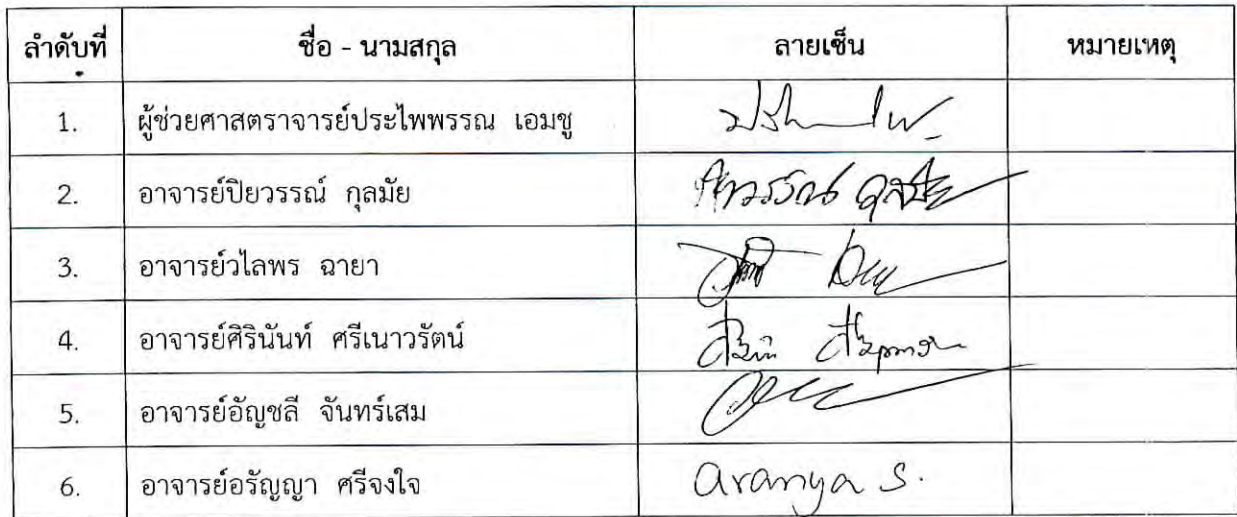 ลำดับที่ ชื่อ - นามสกุล ลายเซ็น หมายเหตุ
1. ผู้ช่วยศาสตราจารย์ประไพพรรณ เอมชู
2. อาจารย์ปิยวรรณ์ กุลมัย
3. อาจารย์วไลพร ฉายา
4. อาจารย์ศิรินันท์ ศรีเนาวรัตน์
5. อาจารย์อัญชลี จันทร์เสม
6. อาจารย์อรัญญา ศรีจงใจ aranya S.